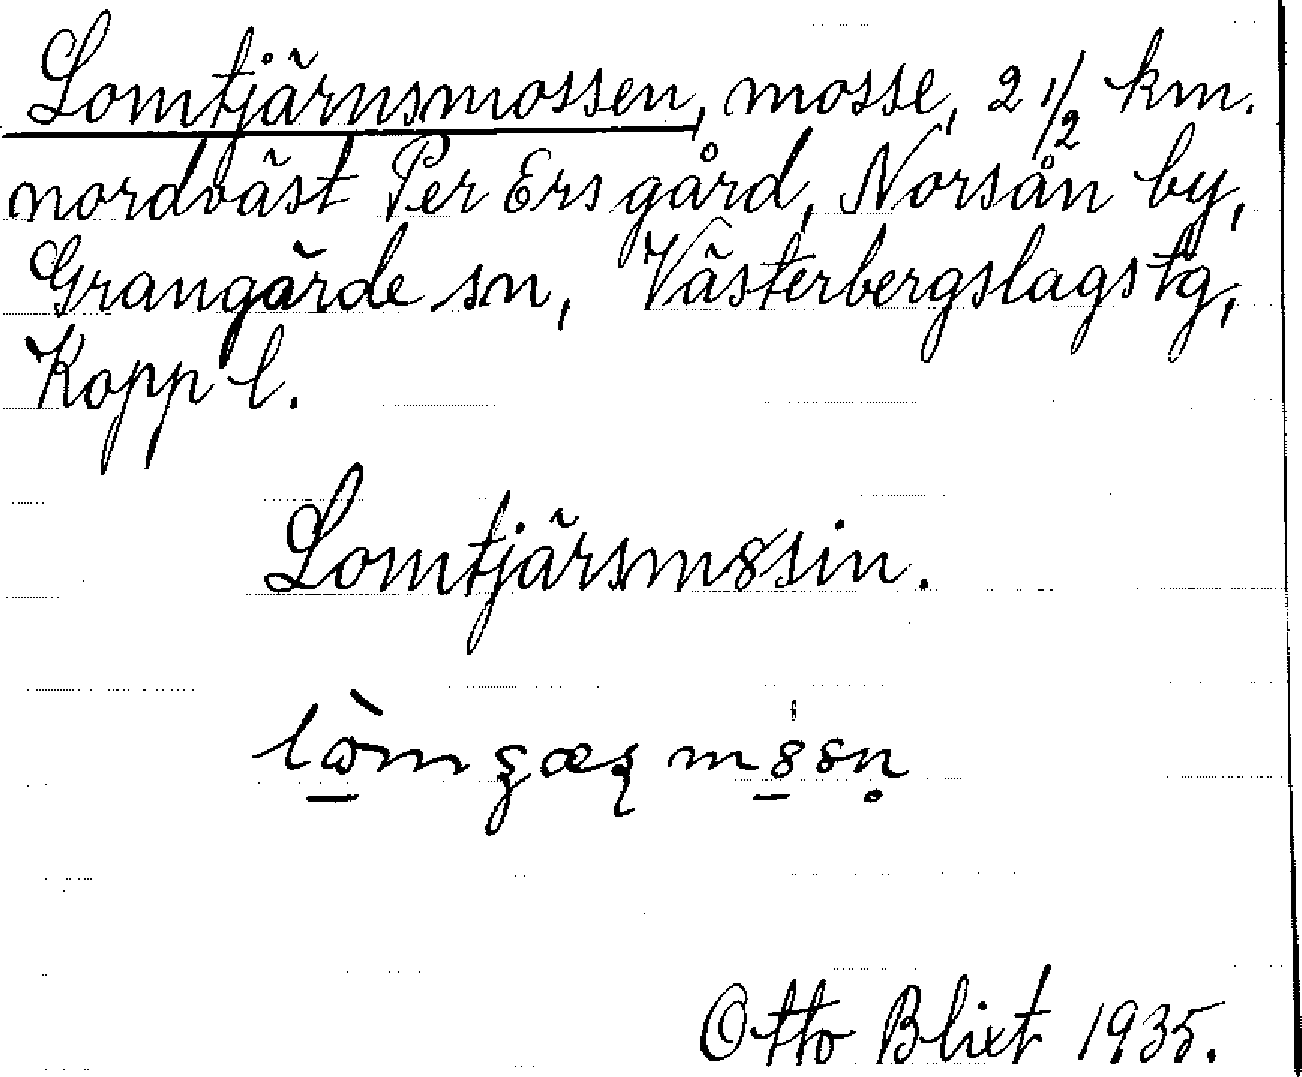 Lomtjärnsmossen, mosse, 2 1/2 km.
nordväst Per Ers gård, Norsån by,
Grangärde sn, Västerbergslags tg,
Kopp l.
Lomtjärsm8sin.
Otto Blixt 1935.